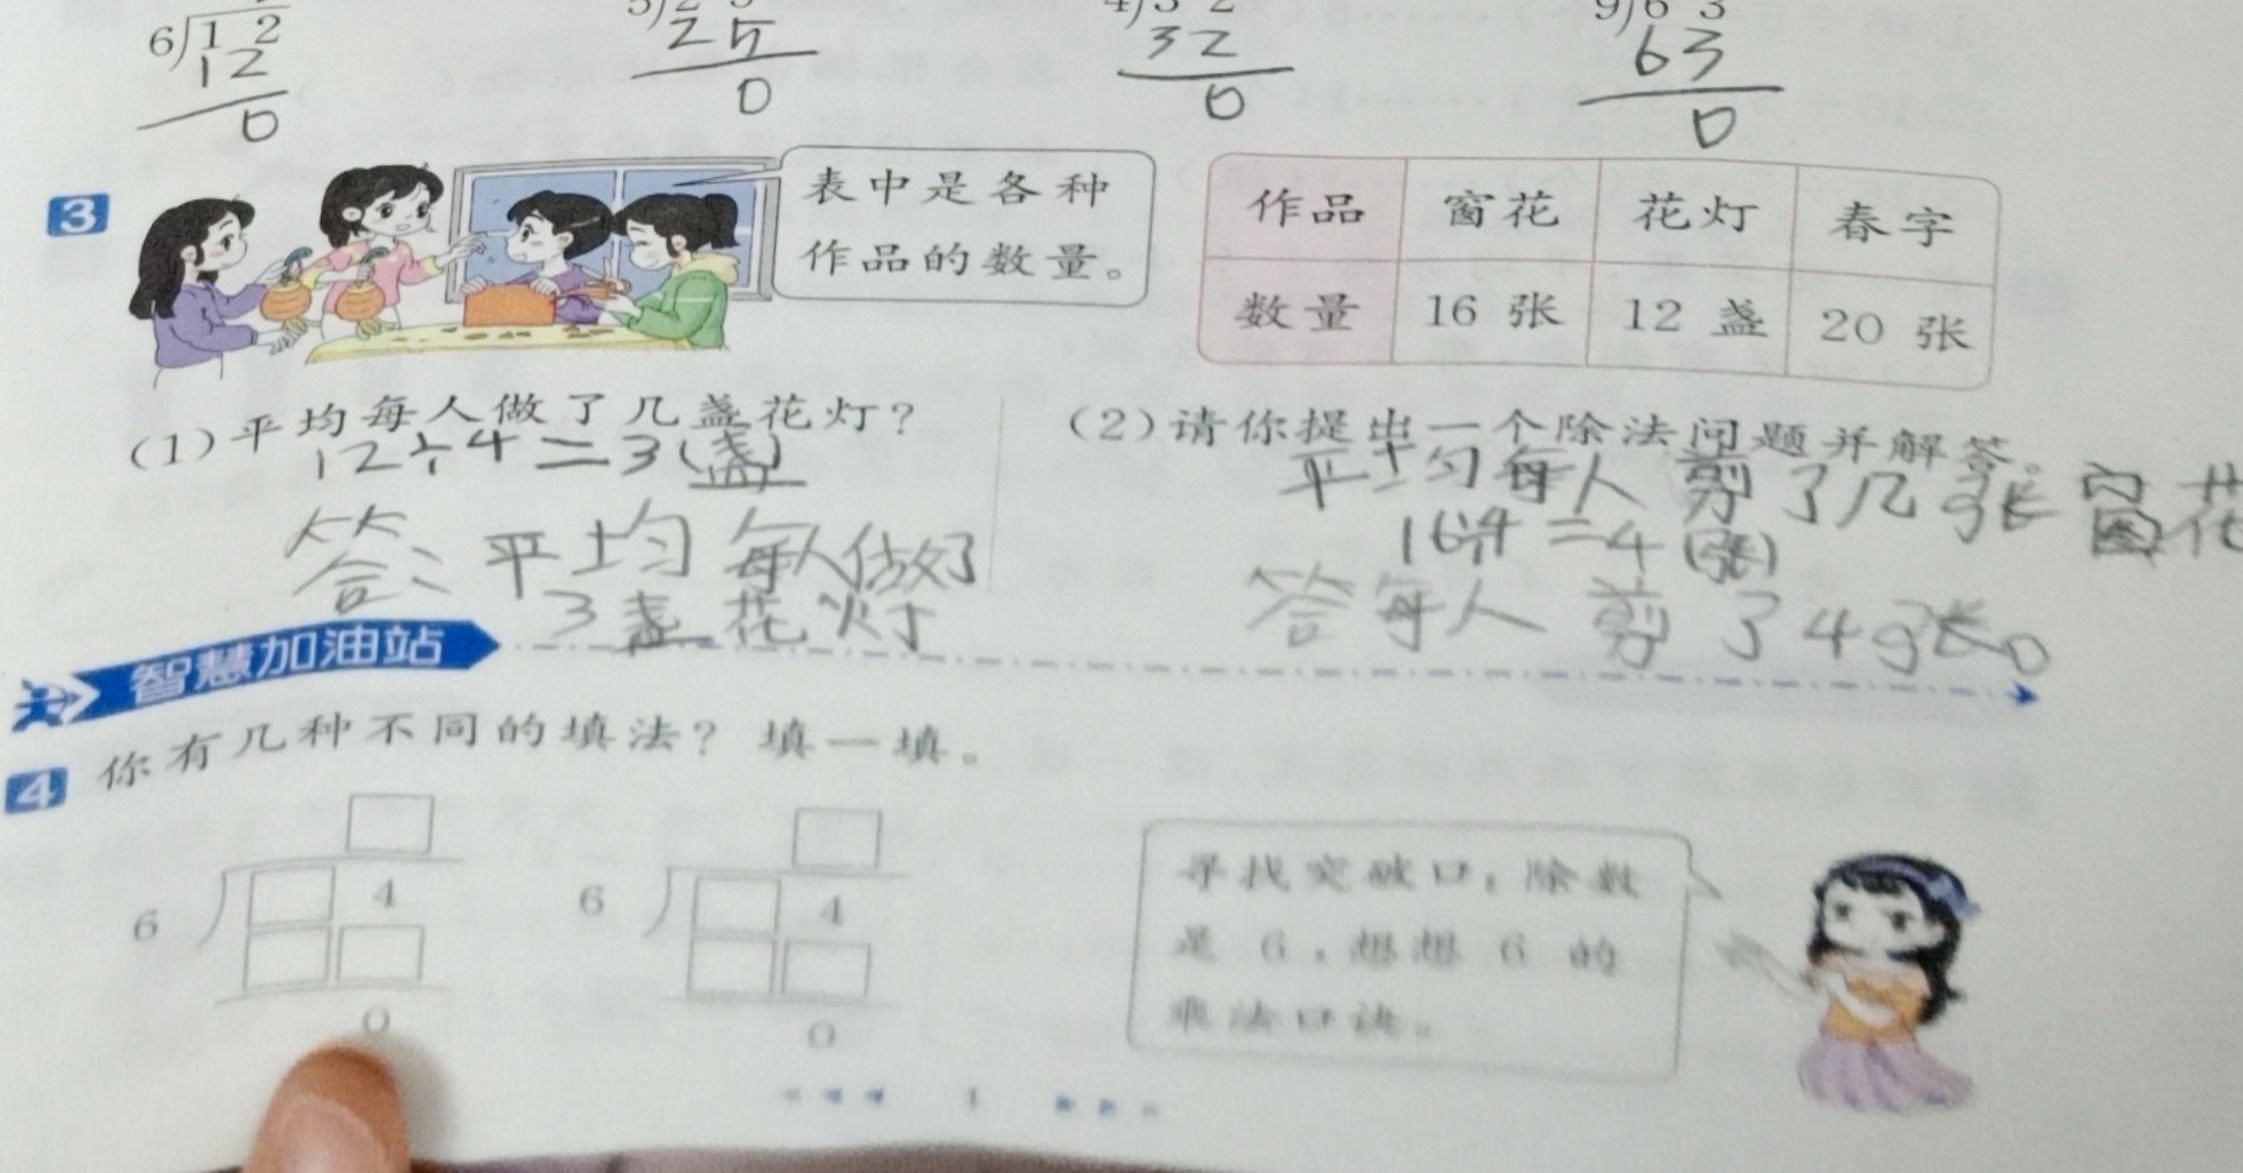 6 1 2
1 2
0
2 5
0
3 2
0
9 6 3
6 3
0
3
表中是各种
作品的数量。
作品 窗花 花灯 春字
数量 16 张 12 盏 20 张
(1)平均每人做了几盏花灯?
12÷4=3(盏)
答:平均每人做好了
3盏花灯
(2)请你提出一个除法问题并解答。
平均每人剪了几张窗花
16÷4=4(张)
答每人剪了4张。
智慧加油站
4 你有几种不同的填法?填一填。
6 4
0
6 4
0
寻找突破口:除数
是 6,想想 6 的
乘法口诀。
1